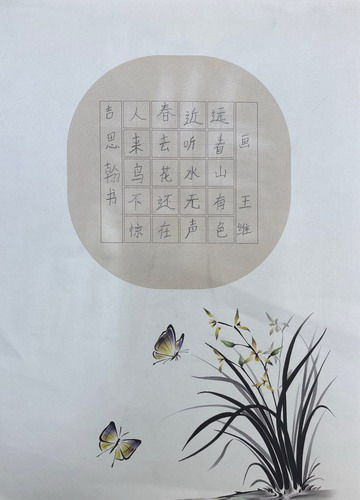 画 王维
远看山有色
近听水无声
春去花还在
人来鸟不惊
吉思翰书